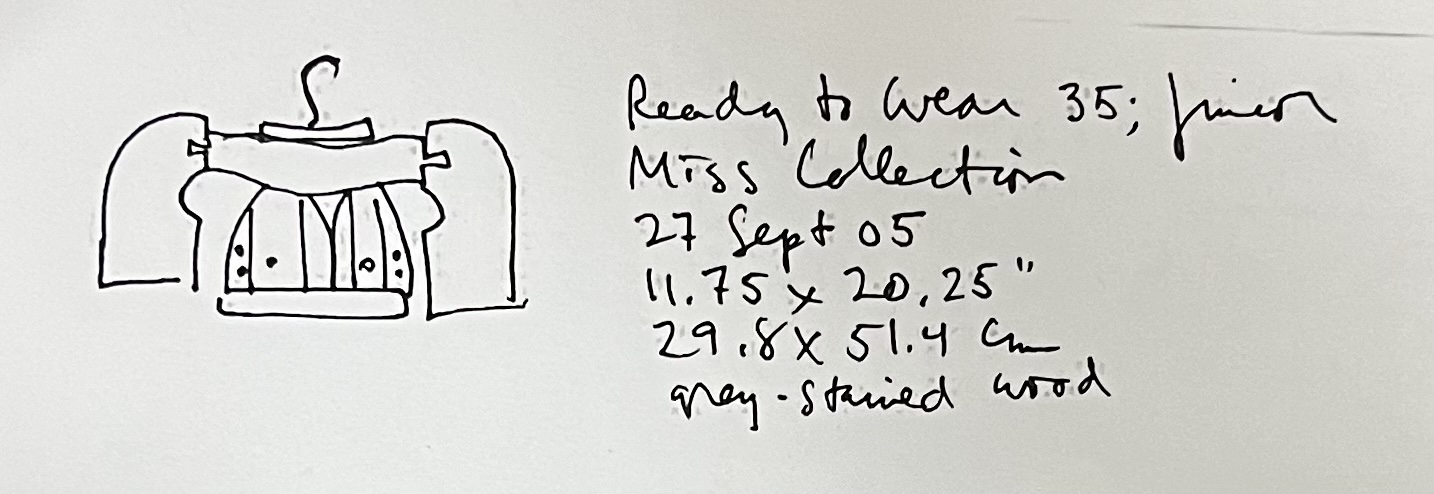 Ready to Wear 35; Junior
Miss Collection
27 Sept 05
11.75 x 20.25"
29.8 x 51.4 cm
grey-stained wood